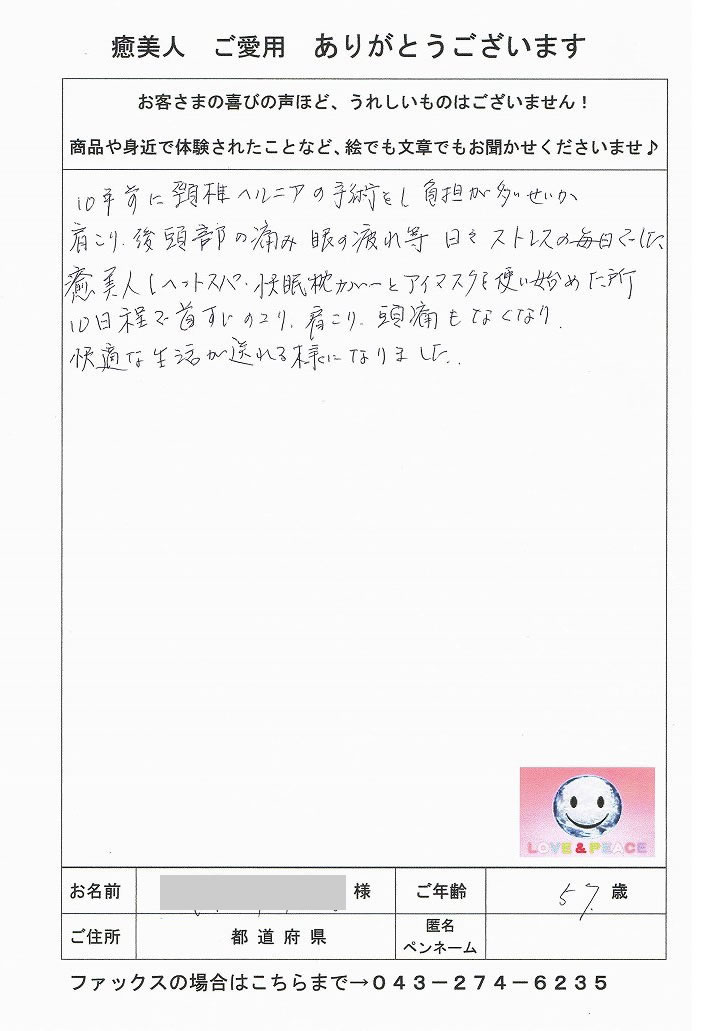 癒美人　ご愛用　ありがとうございます
お客さまの喜びの声ほど、うれしいものはございません！
商品や身近で体験されたことなど、絵でも文章でもお聞かせくださいませ♪
10年前に頚椎ヘルニアの手術をし負担が多いせいか
肩こり.後頭部の痛み 眼の疲れ等 日々ストレスの毎日でした
癒美人(ヘットスパ・快眠枕カバーとアイマスクを使い始めた所
10日程で首すじのコリ.肩こり.頭痛もなくなり.
快適な生活が送れる様になりました.
LOVE & PEACE
お名前 様 ご年齢 57. 歳
ご住所 都道府県 匿名 ペンネーム
ファックスの場合はこちらまで→０４３－２７４－６２３５